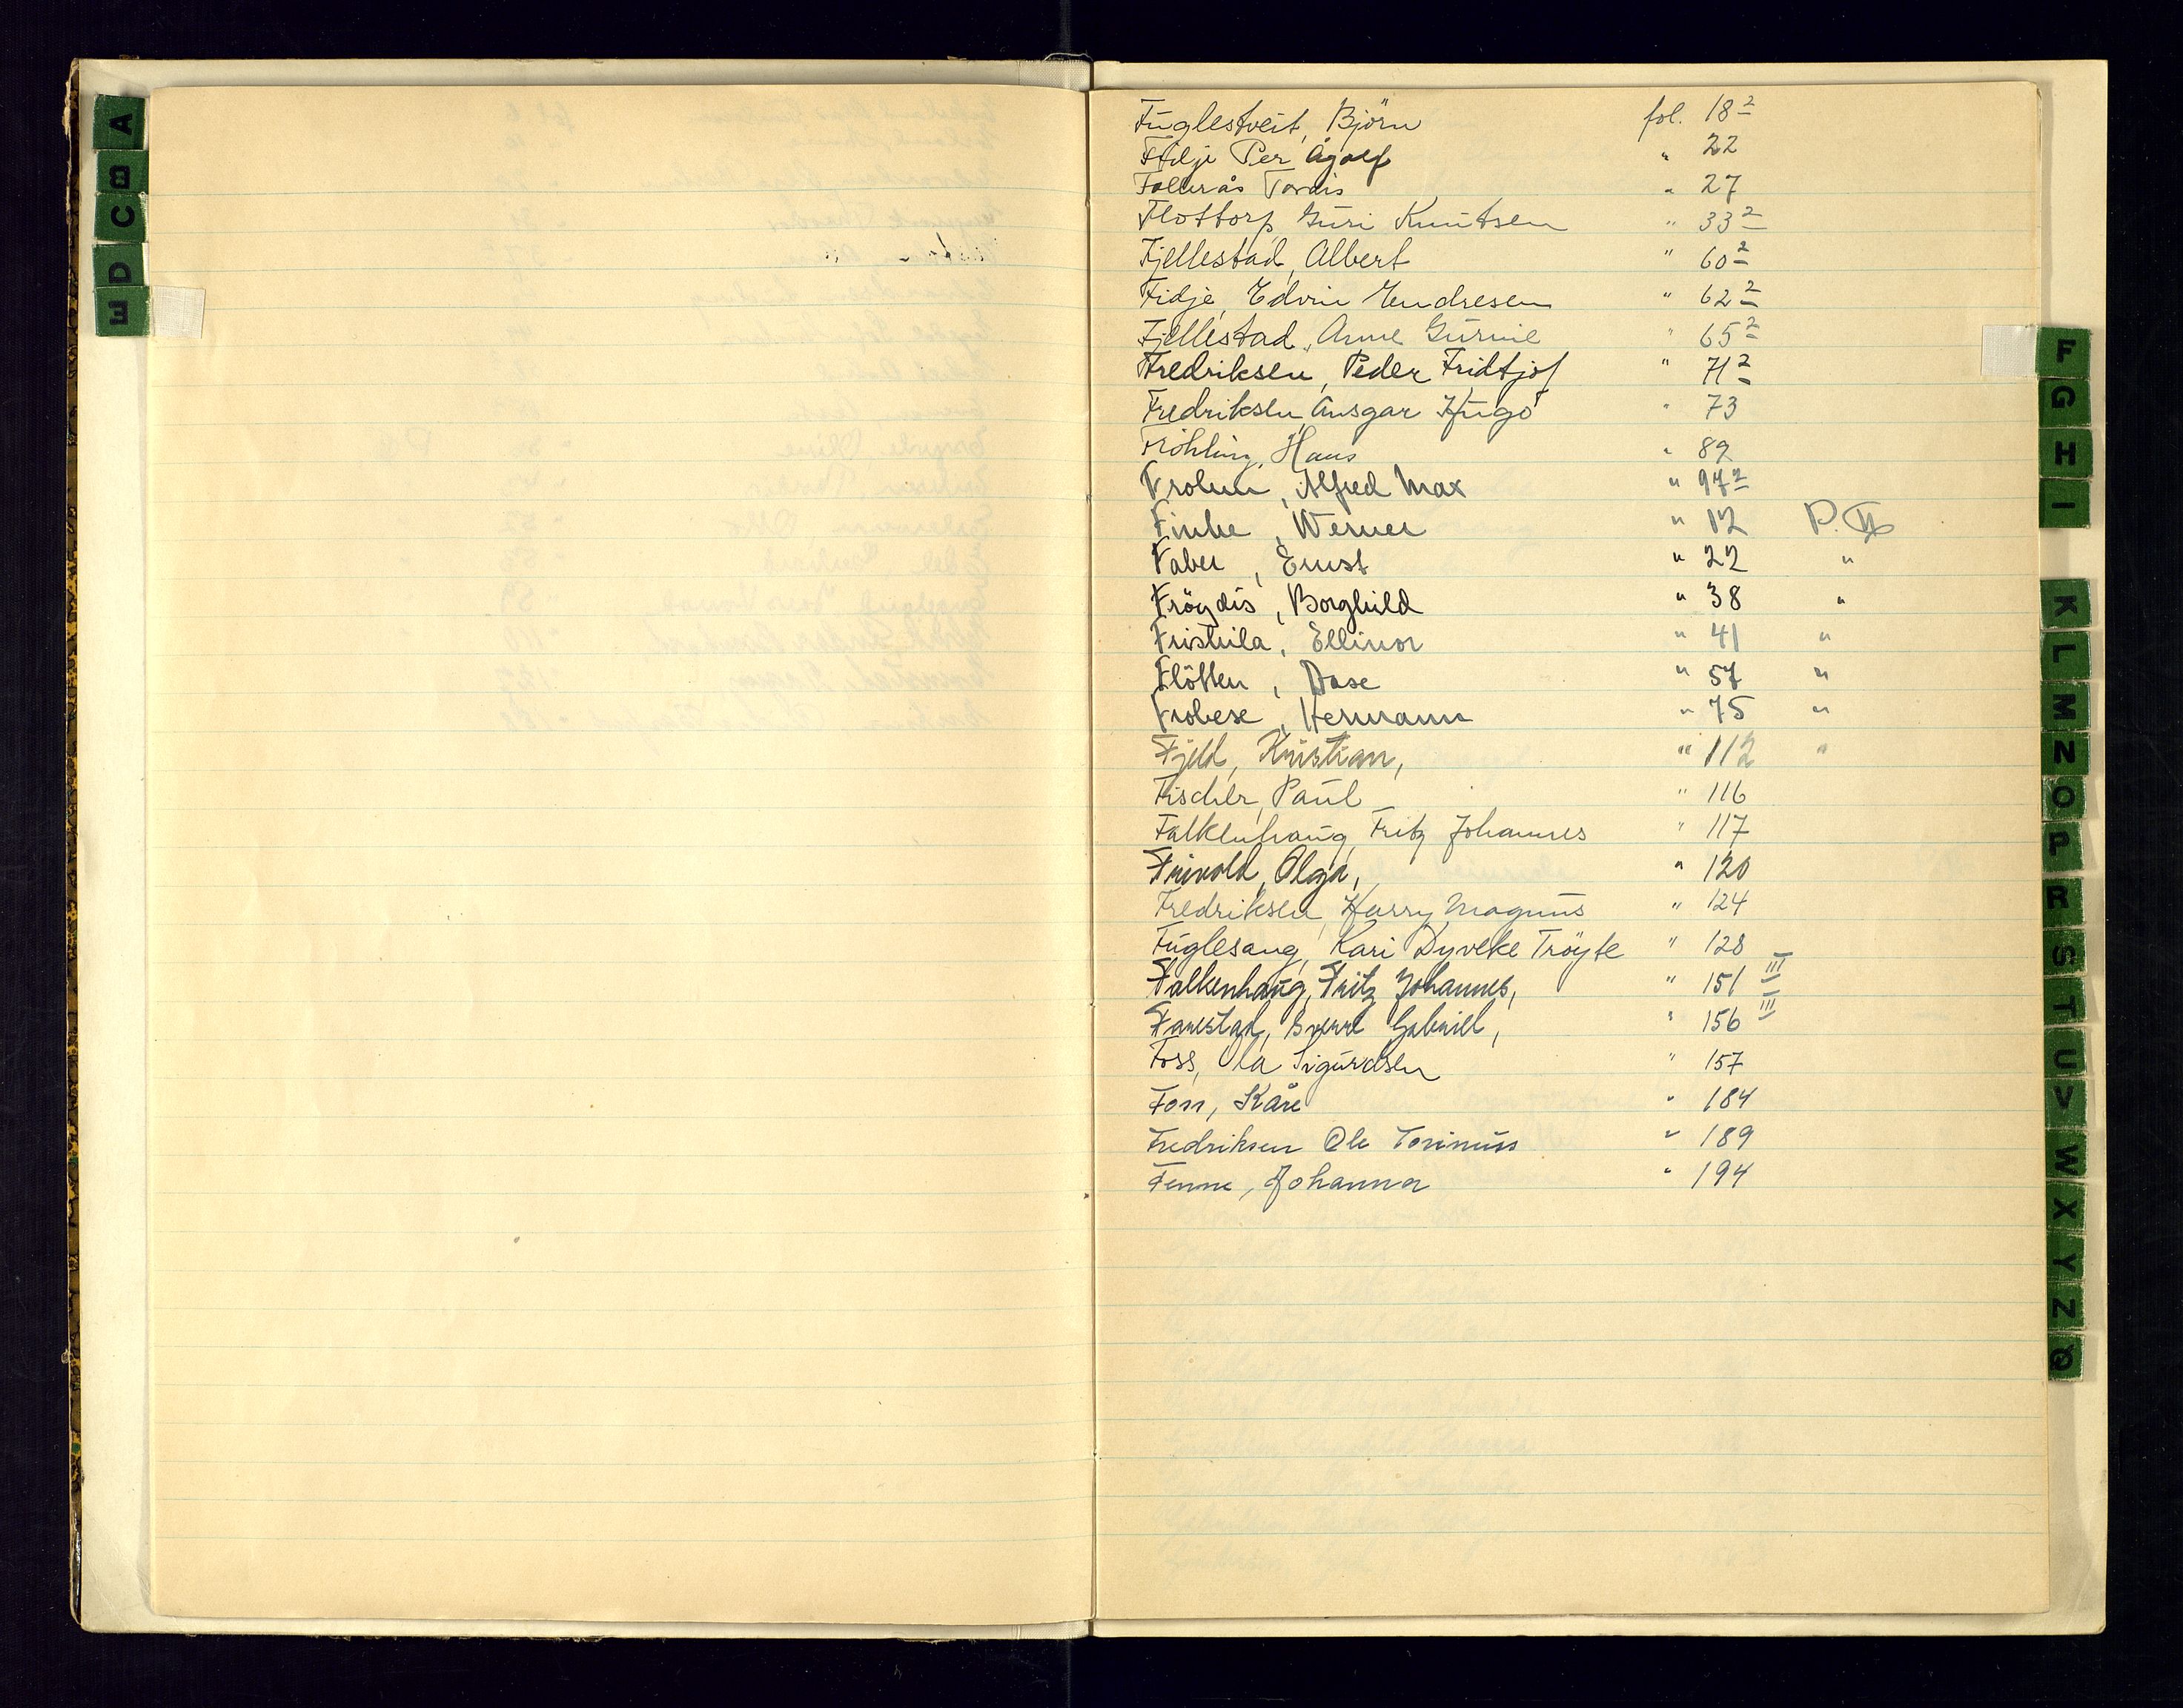 A
B
C
D
E
Fuglestveit, Björn fol. 18²
Filje Per Ågolf " 22
Follerås Tordis " 27
Flottorp, Guri Knutsen " 33²
Fjellestad, Albert " 60²
Fidje, Edvin Endresen " 62²
Fjellestad, Anne Gurine " 65²
Fredriksen, Peder Fridtjof " 71²
Fredriksen, Ansgar Hugo " 73
Fröhling, Hans " 82
Frolun, Alfred Max " 97²
Finke, Werner " 12 P. II
Faber, Ernst " 22 "
Fröydis, Borghild " 38 "
Ellinor " 41 "
Flötten, Dase " 57 "
Frobese, Hermann " 75 "
Fjeld, Kristian, " 112 "
Fischer, Paul " 116
Falkenhaug, Fritz Johannes " 117
Frivold, Olga, " 120
Fredriksen, Harry Magnus " 124
Fuglesang, Kari Dyveke Tröyte " 128
Falkenhaug, Fritz Johannes, " 151 III
Farestad, Sverre Gabriell, " 156 III
Foss, Ola Sigurdsen " 157
Foss, Kåre " 184
Fredriksen Ole Torinuss " 189
Fenne, Johanna " 194
F
G
H
I
K
L
M
N
O
P
R
S
T
U
V
W
X
Y
Z
Q